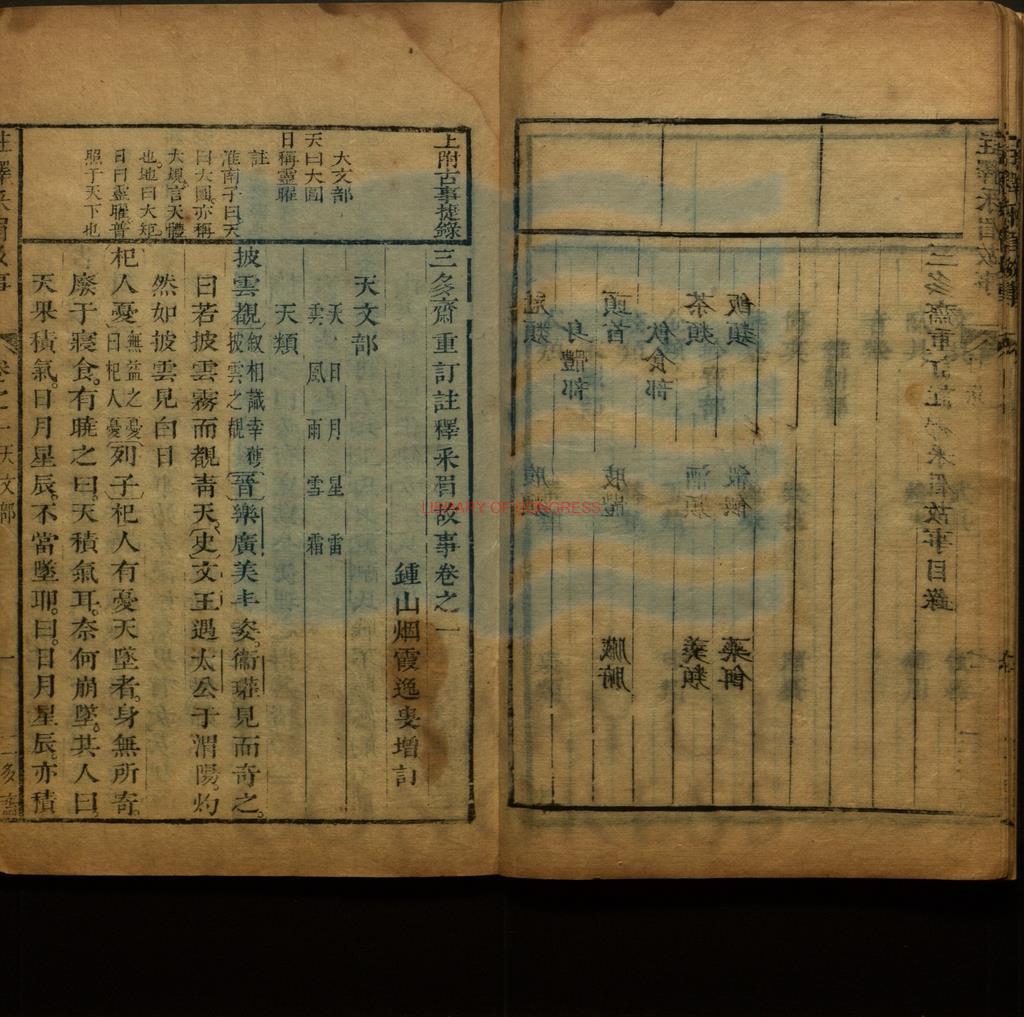 三多齋重訂註釋采眉故事目錄
飯類 殽饌 藥餌
茶類 酒類 羹類
飲食部
頭首 肢體 臟腑
身體部
上附古事捷錄
大文部
天曰大圜
日稱靈曜
註
淮南子曰天
曰大圜亦稱
大規言天體
也地曰大矩
日曰靈曜普
照于天下也
三多齋重訂註釋采眉故事卷之一
鍾山烟霞逸叟增訂
天文部
天 日 月 星 雷
雲 風 雨 雪 霜
天類
披雲覩叙相識幸獲披雲之覩晉樂廣美丰姿。衛瓘見而奇之。
曰若披雲霧而覩青天。史文王遇太公于渭陽。灼
然如披雲見白日
杞人憂無益之憂曰杞人憂列子杞人有憂天墜者。身無所寄。
廢于寢食。有曉之曰。天積氣耳。奈何崩墜。其人曰。
天果積氣。日月星辰。不當墜耶。曰。日月星辰。亦積
註釋采眉故事 卷之一 天文部 一 三多齋
LIBRARY OF CONGRESS